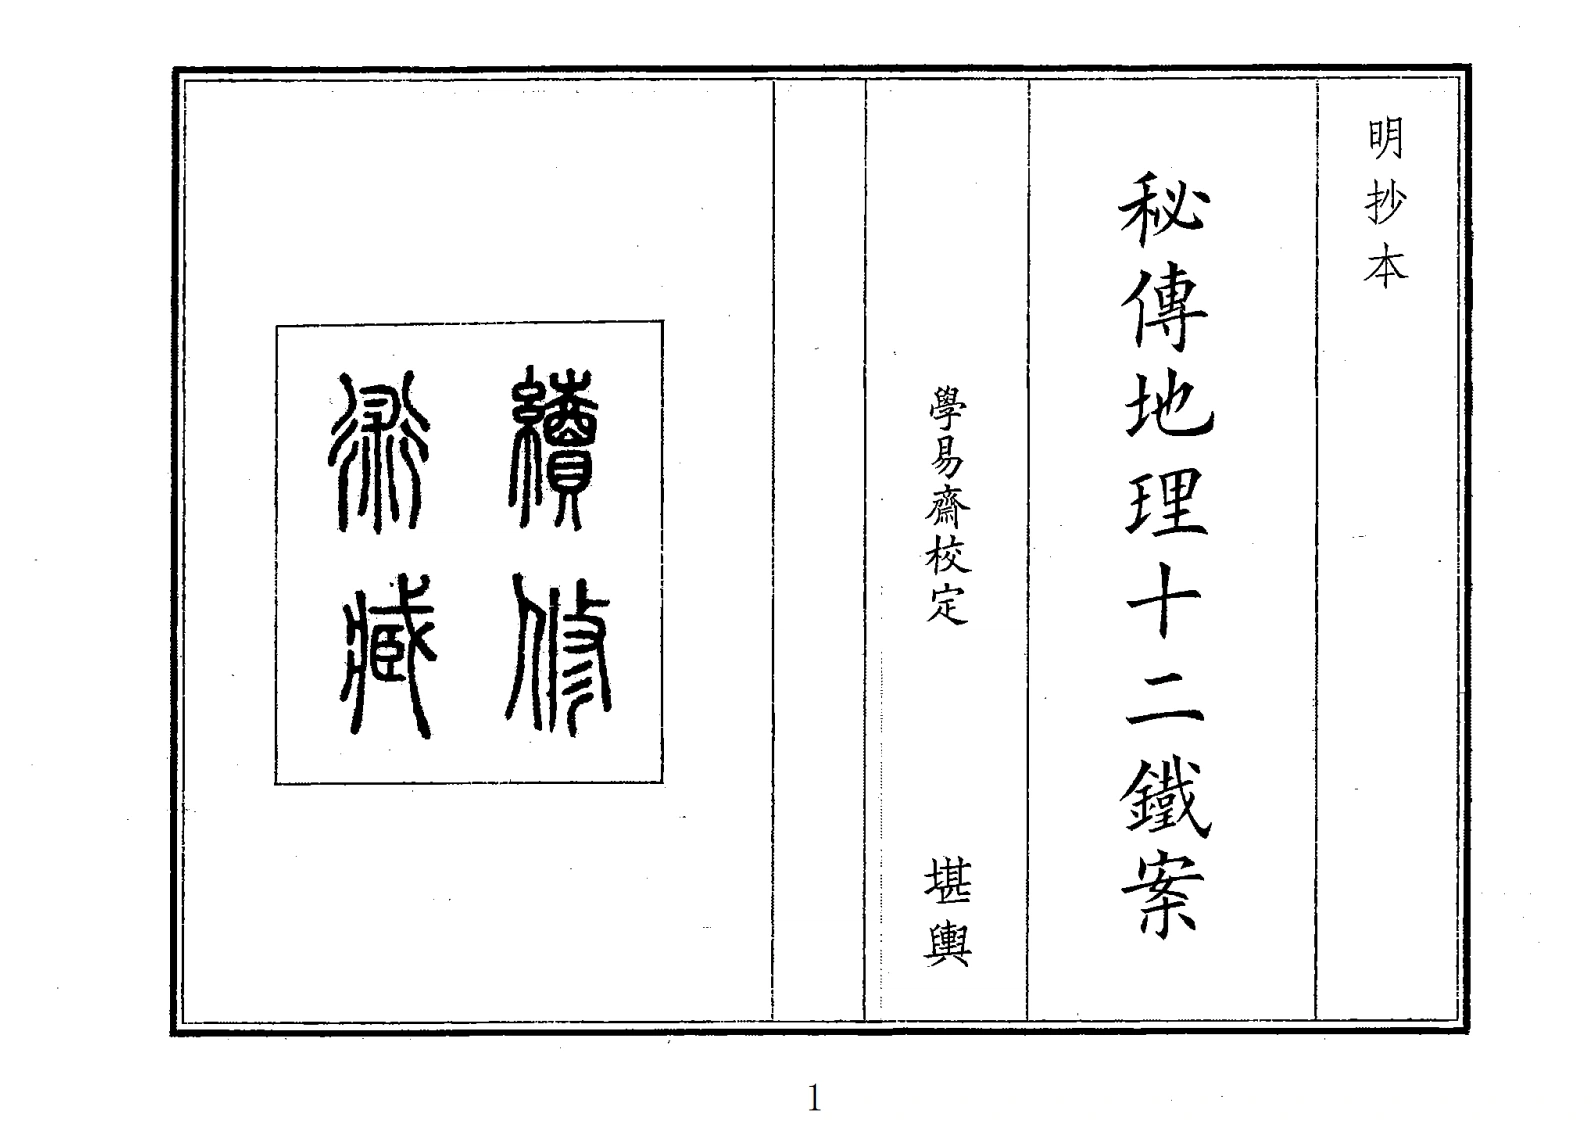 明抄本
秘傳地理十二鐵案
學易齋校定 堪輿
續修
術藏
1